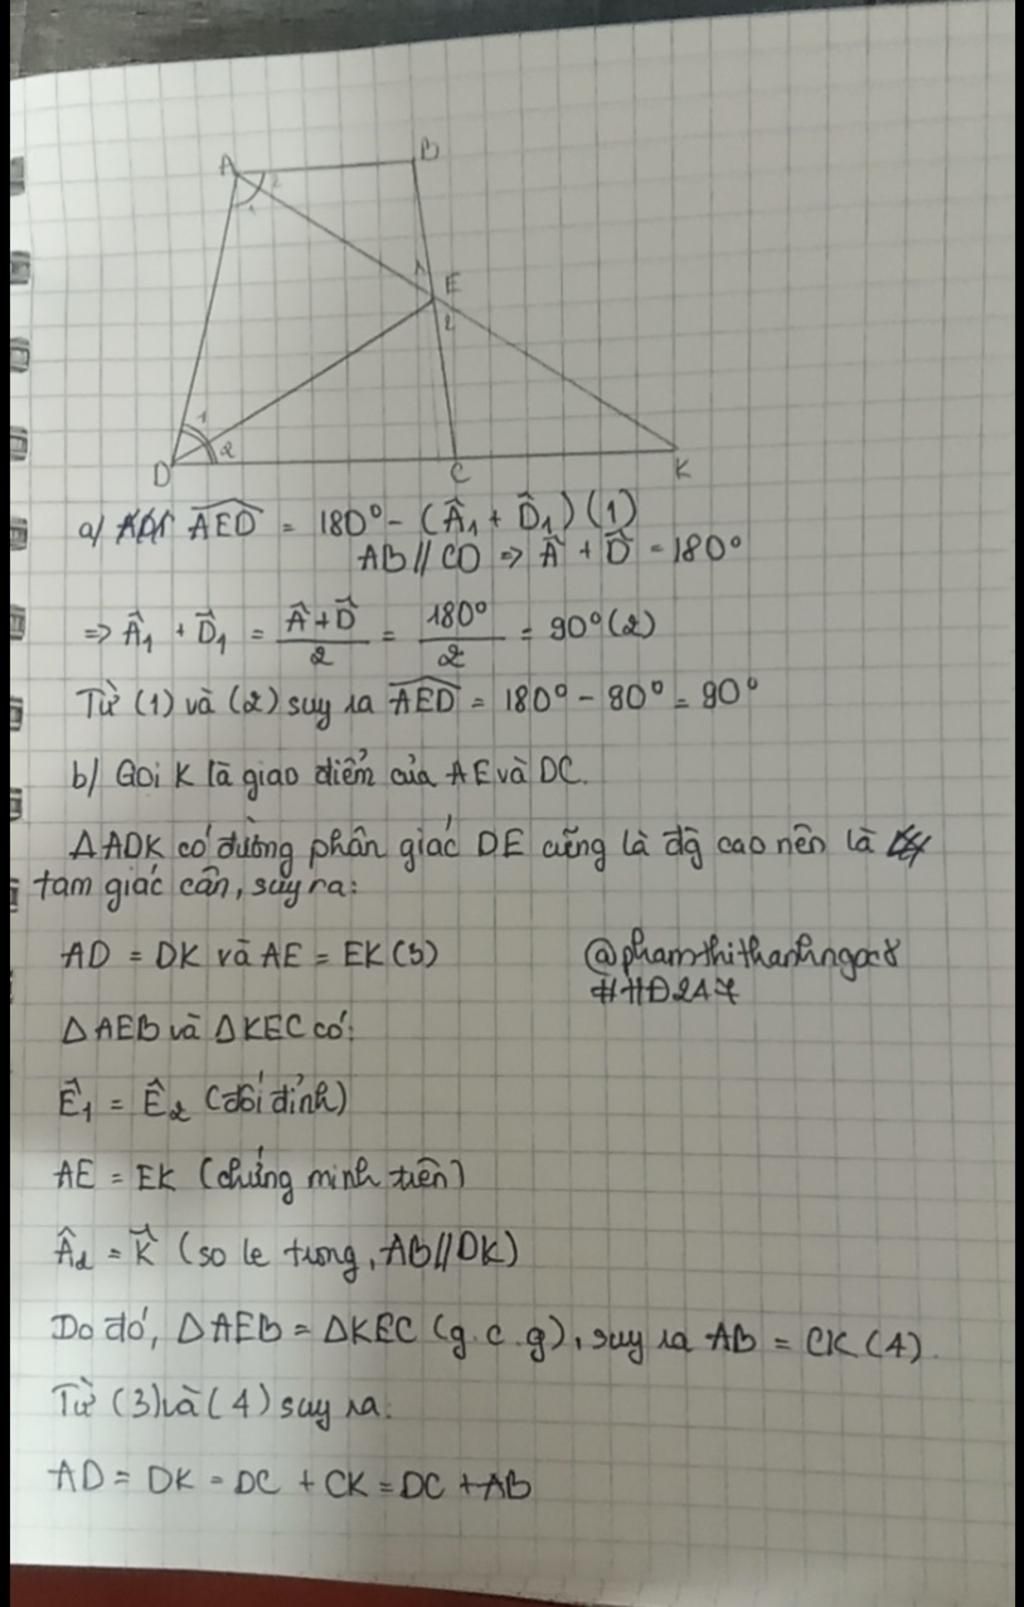 A
B
2
1
1
E
2
1
2
D
C
K
a/ AED = 180° - (Â₁ + D̂₁) (1)
AB // CD => Â + D̂ = 180°
=> Â₁ + D̂₁ = (Â + D̂)/2 = 180°/2 = 90° (2)
Từ (1) và (2) suy ra AED = 180° - 90° = 90°
b/ Gọi K là giao điểm của AE và DC.
∆ADK có đường phân giác DE cũng là đg cao nên là
tam giác cân, suy ra:
AD = DK và AE = EK (3)
@phamthithanhngoc8
#HĐ247
∆AEB và ∆KEC có:
Ê₁ = Ê₂ (đối đỉnh)
AE = EK (chứng minh trên)
Â₂ = K̂ (so le trong, AB // DK)
Do đó, ∆AEB = ∆KEC (g.c.g), suy ra AB = CK (4).
Từ (3) và (4) suy ra:
AD = DK = DC + CK = DC + AB